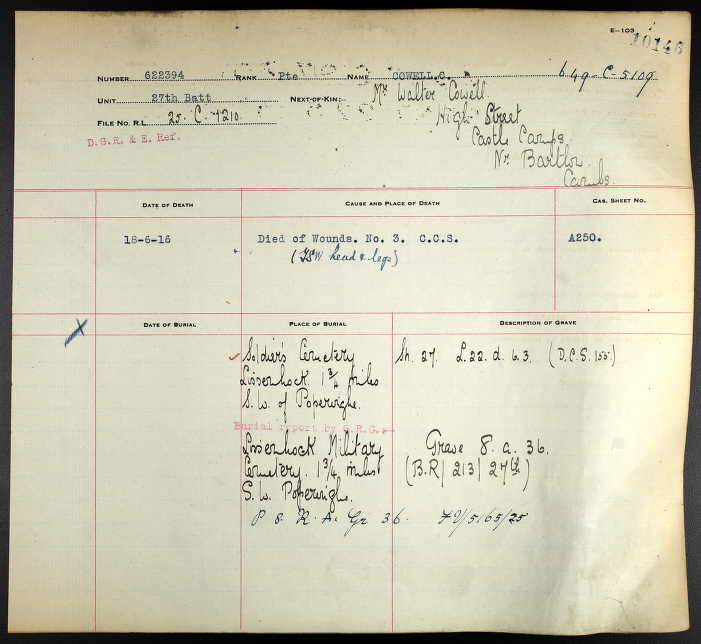 E-103
10146
NUMBER 622394 RANK Pte NAME COWELL.C. 649-C-5109
UNIT 27th Batt NEXT-OF-KIN: Mr Walter Cowell
High Street
FILE NO. R.L. 25. C. 7210
Castle Camps
D.G.R. & E. Ref.
Nr Bartlow.
Cambs.
DATE OF DEATH CAUSE AND PLACE OF DEATH CAS. SHEET NO.
18-6-16 Died of Wounds. No. 3. C.C.S. A250.
(GSW head & legs)
DATE OF BURIAL PLACE OF BURIAL DESCRIPTION OF GRAVE
Soldier's Cemetery Sh. 27. L.22.d. 6.3. (D.C.S. 155.)
Lissenhock 1 3/4 miles
S.W. of Poperinghe.
Burial report by G.R.C.
Lissenhock Military Grave 8. a. 36.
Cemetery. 1 3/4 miles (B.R/ 213/ 27th)
S.W. Poperinghe.
P 8. R. A. Gr 36.